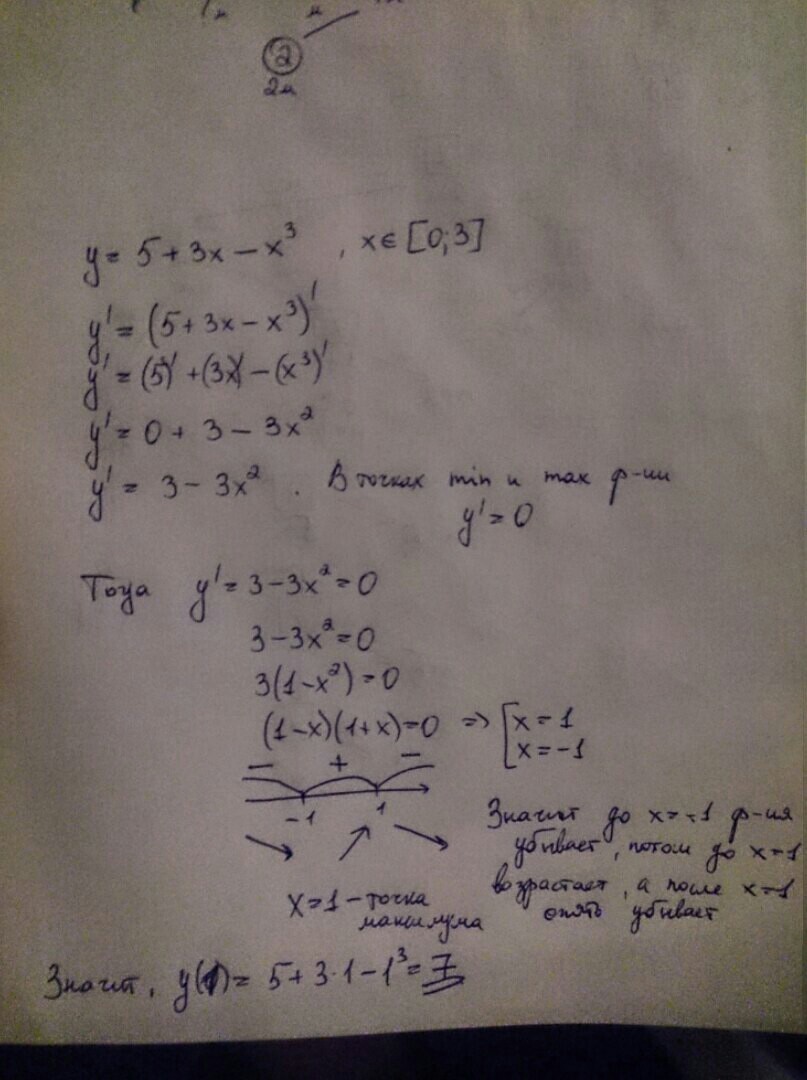 2
2м
y = 5 + 3x − x³ , x ∈ [0;3]
y' = (5 + 3x − x³)'
y' = (5)' + (3x)' − (x³)'
y' = 0 + 3 − 3x²
y' = 3 − 3x² . В точках min и max ф-ии
y' = 0
Тогда y' = 3 − 3x² = 0
3 − 3x² = 0
3(1 − x²) = 0
(1 − x)(1 + x) = 0 => [ x = 1
x = −1
− + −
−1 1
Значит до x = −1 ф-ия
убывает, потом до x = 1
возрастает, а после x = 1
опять убывает
x = 1 − точка
максимума
Значит, y(1) = 5 + 3·1 − 1³ = 7